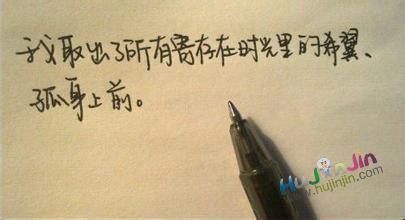 我取出了所有寄存在时光里的希翼、
孤身上前。
HuJinJin
www.hujinjin.com